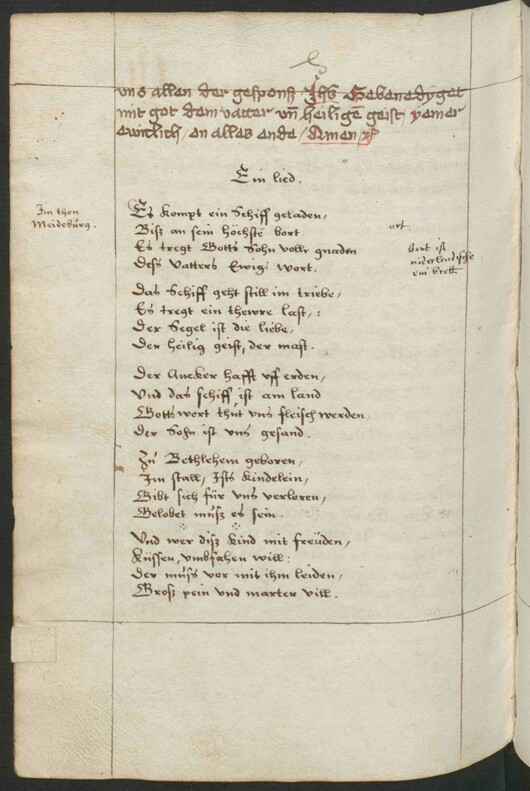 uns allen der gesponß Jhs Gebenedyget
mit got dem vatter vñ heiligē geist, yemer
ewiclich, on alles ende, Amen
Ein lied.
Im thon
Meideburg.
Es kompt ein Schiff geladen,
Biß an sein höchste bort.
ort.
Es tregt Gotts Sohn voller gnaden
Dess Vatters Ewigs wort.
bort ist
niderlendische
ein brett
Das Schiff geht still im triebe,
Es tregt ein thewre last, :
Der Segel ist die liebe,
Der heilig geist, der mast.
Der Ancker hafft vff erden,
Vnd das schiff ist am land
Gotts wort thut vns fleisch werden,
Der Sohn ist vns gesand.
Zu Bethlehem geboren,
Im stall, Ists Kindelein,
Gibt sich für vns verloren,
Gelobet muss es sein.
Vnd wer diss Kind mit freuden,
Küssen, vmbfahen will:
Der muss vor mit ihm leiden,
Gross pein vnd marter vill.